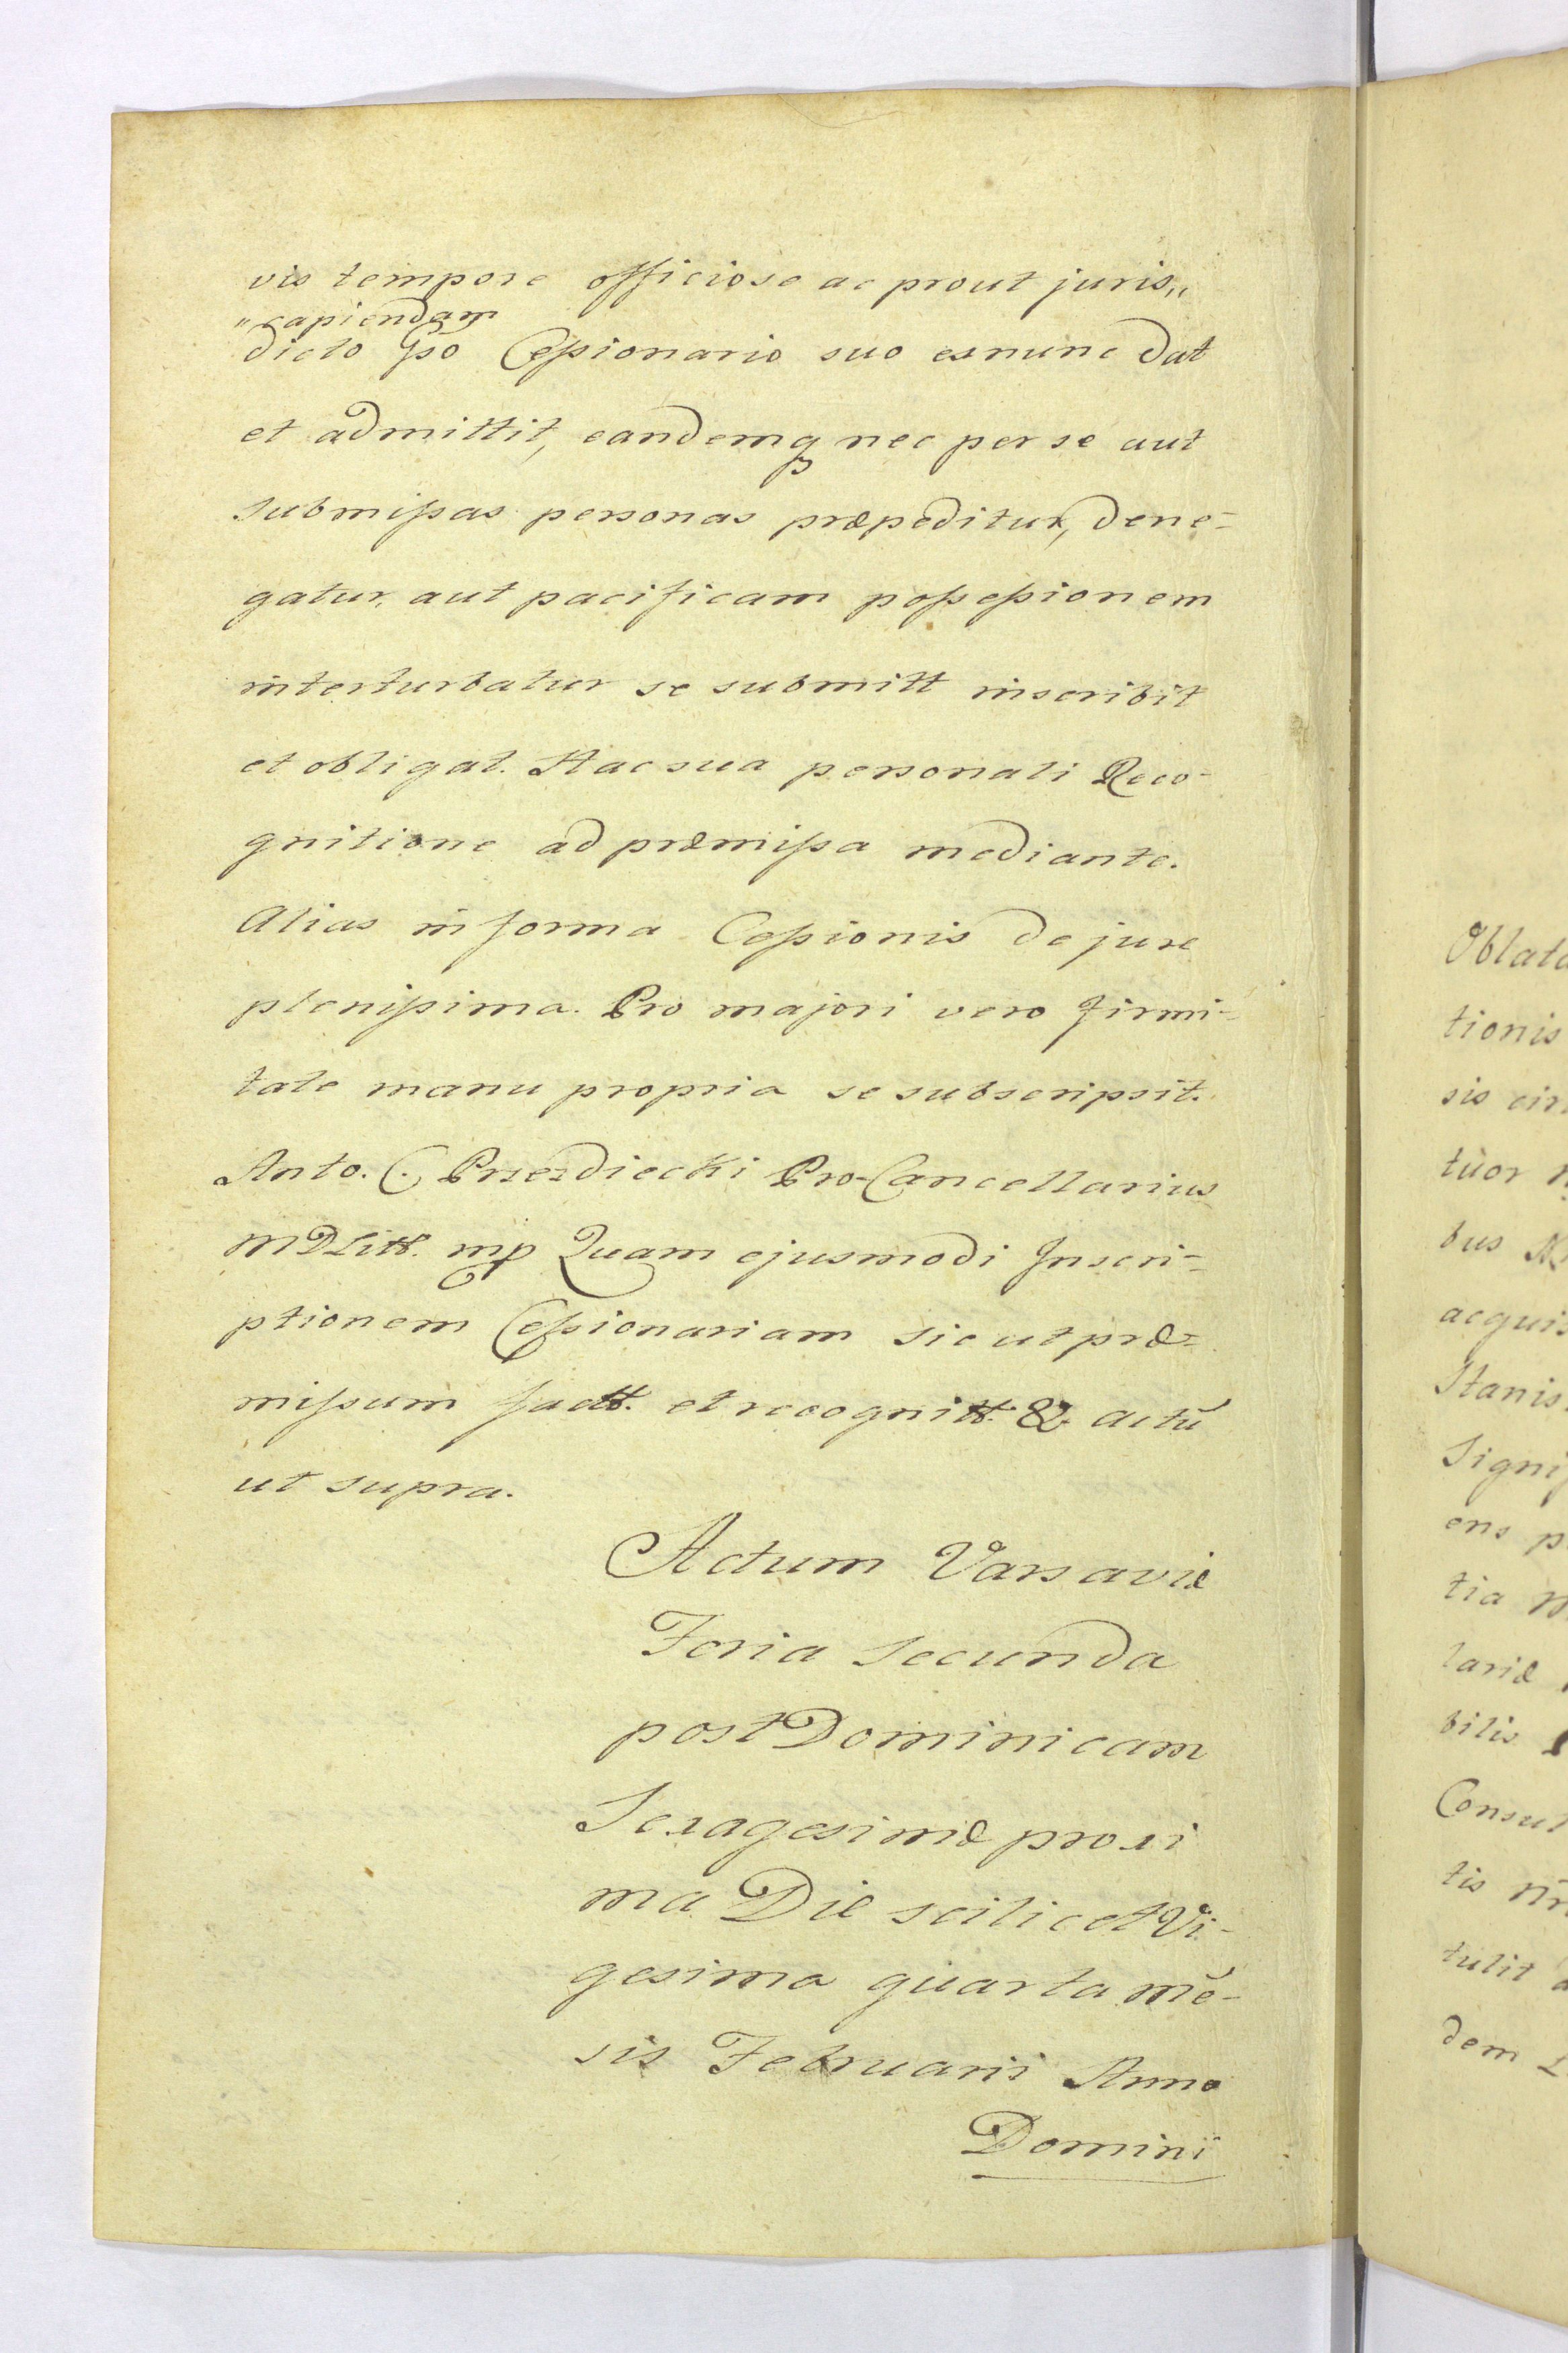 vis tempore officiose ac prout juris„
„capiendam
dicto Gso Cessionario suo exnunc dat
et admittit, eandemq nec per se aut
submissas personas præpeditur, dene-
gatur, aut pacificam possessionem
interturbatur se submitt inscribit
et obligat. Hac sua personali Reco-
gnitione ad præmissa mediante.
Alias in forma Cessionis de jure
plenissima. Pro majori vero firmi-
tate manu propria se subscripsit.
Anto. C. Przezdiecki Pro-Cancellarius
MDLitt. mp Quam ejusmodi Inscri-
ptionem Cessionariam sic ut præ-
missum factt. et recognitt. &. actū
ut supra.
Actum Varsaviæ
Feria secunda
post Dominicam
Sexagesimæ proxi
ma Die scilicet Vi-
gesima quarta mē-
sis Februarii Anno
Domini
Oblata
tionis
sis cir
tuor
bus
acquis
Stanis
Signif
ens p
tia
lariæ
bilis
Consul
tis
tulit
dem